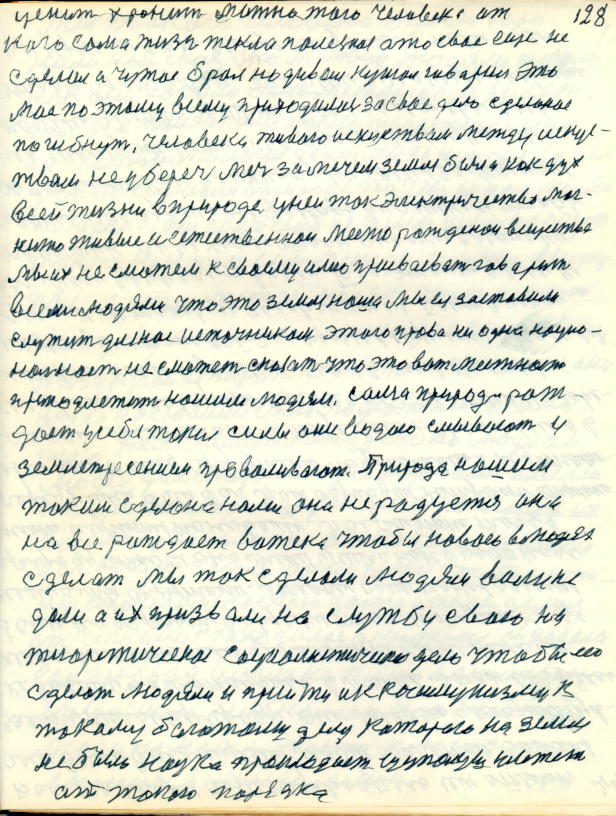 ценит хронит можно того человека от 128
кого сама жизя текла полезное это свае еще не
сделал а чужое брал надивал нужал гаварил это
мое по этому всему приходилос за свое дело сделаное
погибнут, человека живого искуствам между искус-
твам не уберег меч за мечем земля была как дух
всей жизни в природе у ней ток электричества маг-
нито живые и естественное место рожденой вещества
мы их не сможем к своему присваеват гаварит
всеми людями что это земля наша мы ея заставили
служит дленое источником этого права ни одна нацио-
налност не сможет сказат что это вот местност
принадлежит нашим людям. сама природа рож-
дает у себя таких силы они водою смывают и
землетресением проваливают. Природа нашим
таким сделана нами она не радуется она
на все рождает человека чтобы новое в людях
сделат мы так сделали людями волу не
дали а их призвали на службу свою на
теоретическое социалистическо дело чтобы его
сделат людями и прийти и к комунизму к
такому богатому делу которого на земли
не было наука прападает
от такого порядка